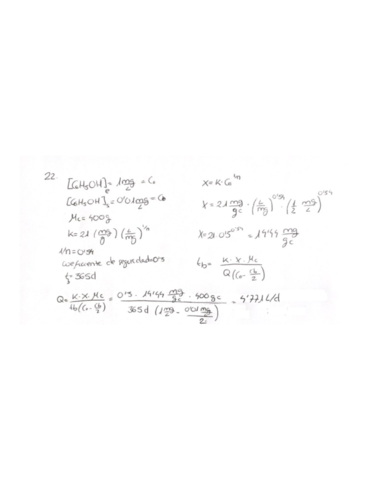 22.
[C6H5OH]e = 1 mg/L = Co
[C6H5OH]s = 0'01 mg/L = Cb
Mc = 400g
K = 21 (mg/g) (L/mg)^1/n
1/n = 0'54
coeficiente de seguridad 0'3
tb = 365d
X = K · Co^1/n
X = 21 mg/gc · (L/mg)^0'54 · (1/2 mg/L)^0'54
X = 21 · 0'5^0'54 = 14'44 mg/gc
tb = K · X · Mc / Q (Co - Cb/2)
Q = K · X · Mc / tb (Co - Cb/2) = 0'3 · 14'44 mg/gc · 400 gc / 365d (1 mg/L - 0'01 mg/L / 2) = 4'771 L/d